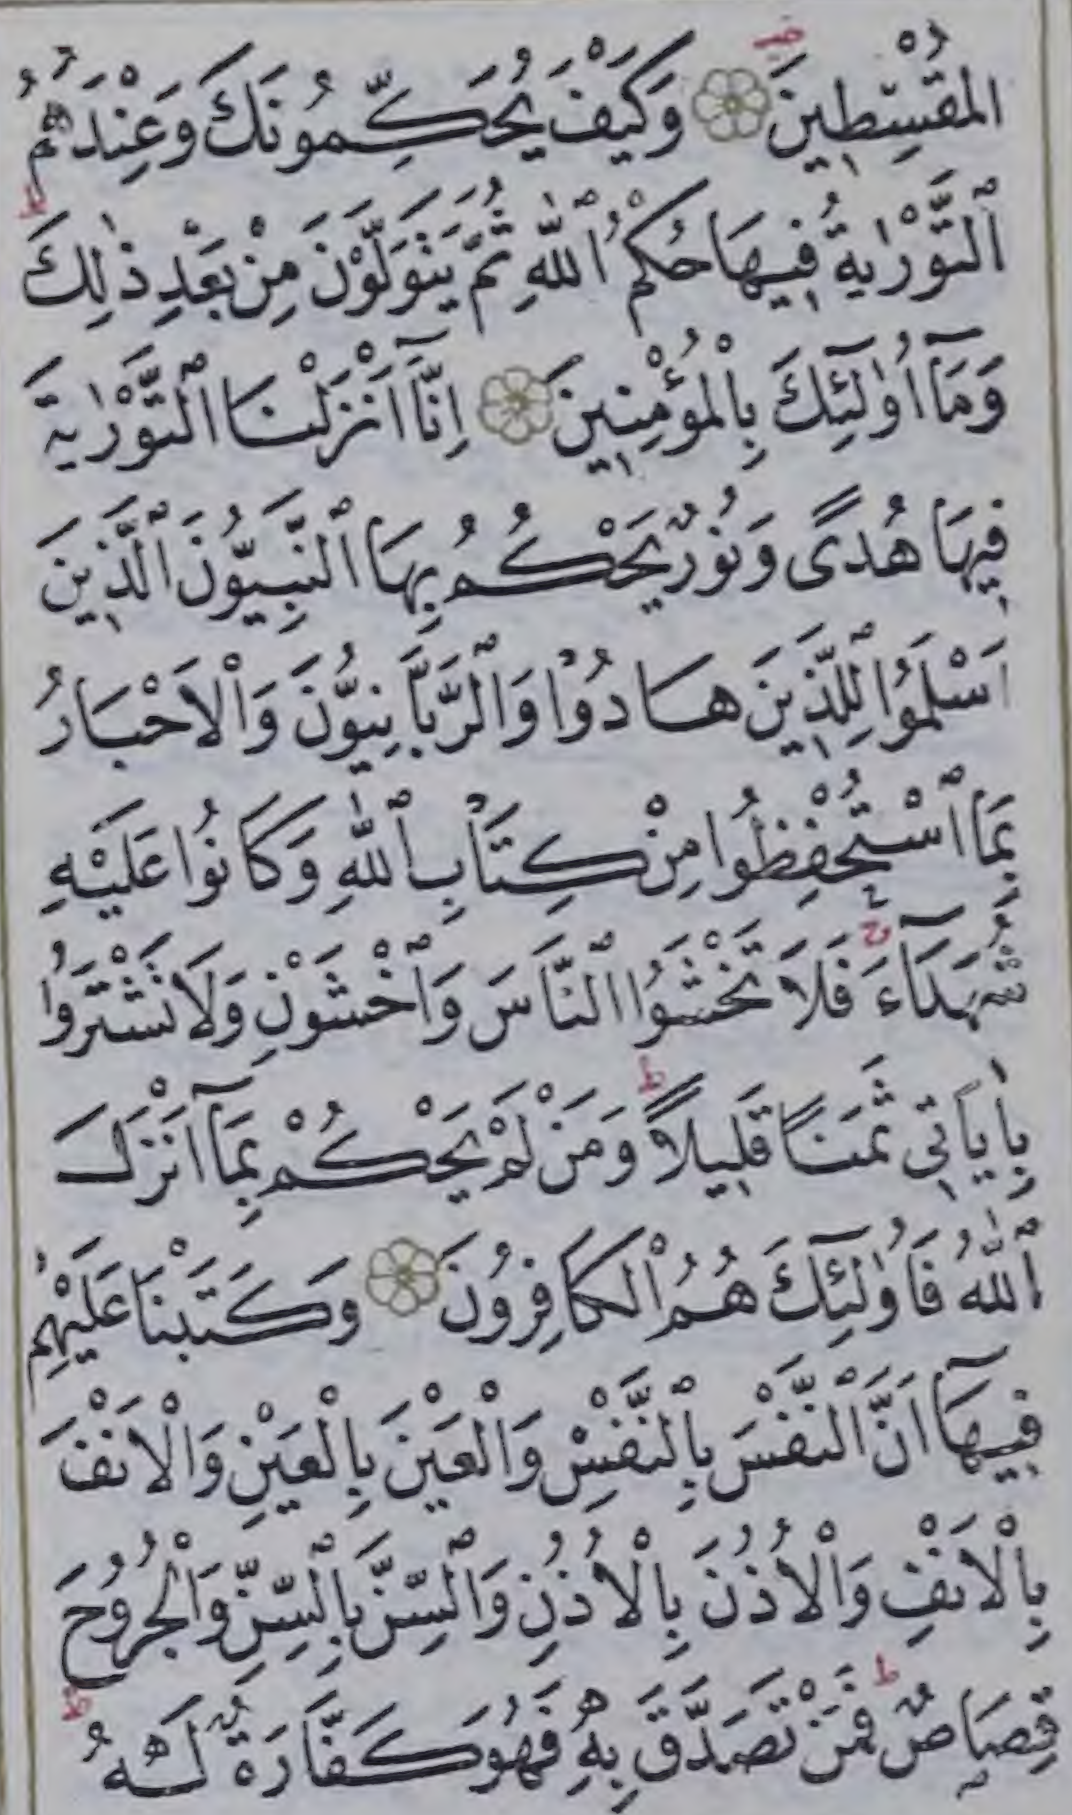 الْمُقْسِطِينَ وَكَيْفَ يُحَكِّمُونَكَ وَعِنْدَهُمُ
ٱلتَّوْرٰيةُ فِيهَا حُكْمُ ٱللّٰهِ ثُمَّ يَتَوَلَّوْنَ مِنْ بَعْدِ ذٰلِكَ
وَمَٓا اُو۬لٰٓئِكَ بِالْمُؤْمِنِينَ اِنَّٓا اَنْزَلْنَا ٱلتَّوْرٰيةَ
فِيهَا هُدًى وَنُورٌ يَحْكُمُ بِهَا ٱلنَّبِيُّونَ الَّذِينَ
اَسْلَمُوا لِلَّذِينَ هَادُوْا وَٱلرَّبَّانِيُّونَ وَالْاَحْبَارُ
بِمَا ٱسْتُحْفِظُوا مِنْ كِتَابِ ٱللّٰهِ وَكَانُوا عَلَيْهِ
شُهَدَٓاءَ فَلَا تَخْشَوُا النَّاسَ وَٱخْشَوْنِ وَلَا تَشْتَرُوا
بِاٰيَاتِي ثَمَنًا قَلِيلًا وَمَنْ لَمْ يَحْكُمْ بِمَٓا اَنْزَلَ
ٱللّٰهُ فَاُو۬لٰٓئِكَ هُمُ الْكَافِرُونَ وَكَتَبْنَا عَلَيْهِمْ
فِيهَٓا اَنَّ النَّفْسَ بِٱلنَّفْسِ وَالْعَيْنَ بِالْعَيْنِ وَالْاَنْفَ
بِالْاَنْفِ وَالْاُذُنَ بِالْاُذُنِ وَٱلسِّنَّ بِٱلسِّنِّ وَالْجُرُوحَ
قِصَاصٌ فَمَنْ تَصَدَّقَ بِهٖ فَهُوَ كَفَّارَةٌ لَهُ